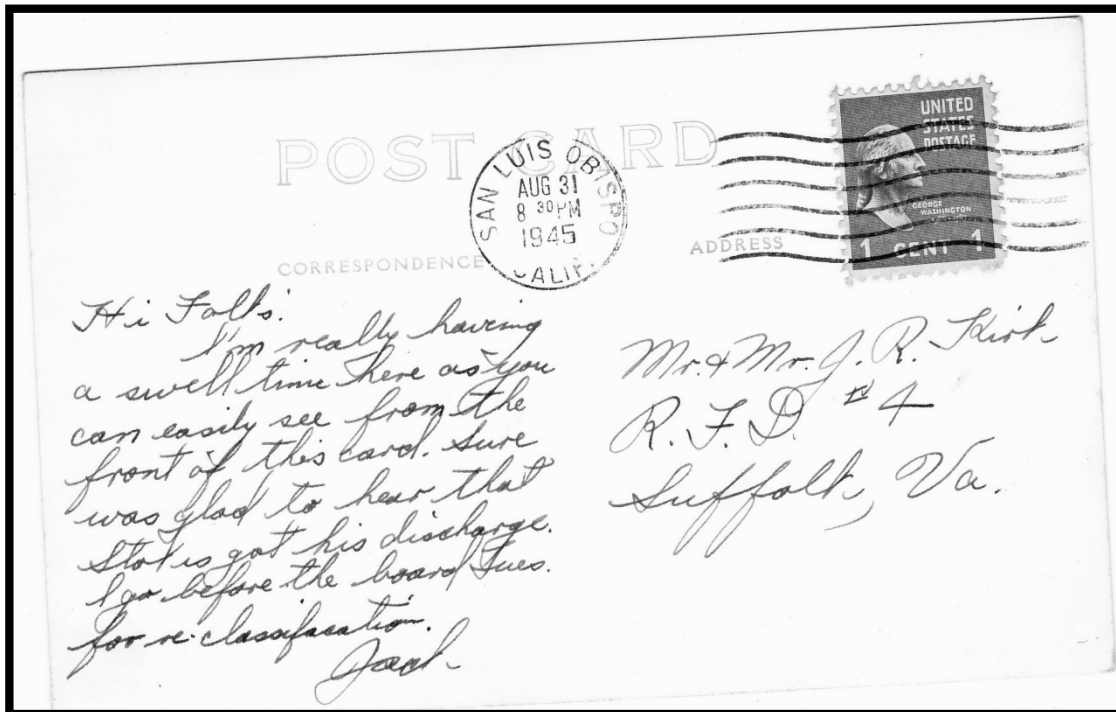 POST CARD
SAN LUIS OBISPO
AUG 31
8 30 PM
1945
CALIF.
UNITED
STATES
POSTAGE
GEORGE
WASHINGTON
1 CENT 1
CORRESPONDENCE
ADDRESS
Hi Folks.
I'm really having
a swell time here as you
can easily see from the
front of this card. Sure
was glad to hear that
got his discharge.
I go before the board Tues.
for re-classifacation.
Jack
Mr. & Mr. J. R. Kirk
R. F. D. #4
Suffolk, Va.